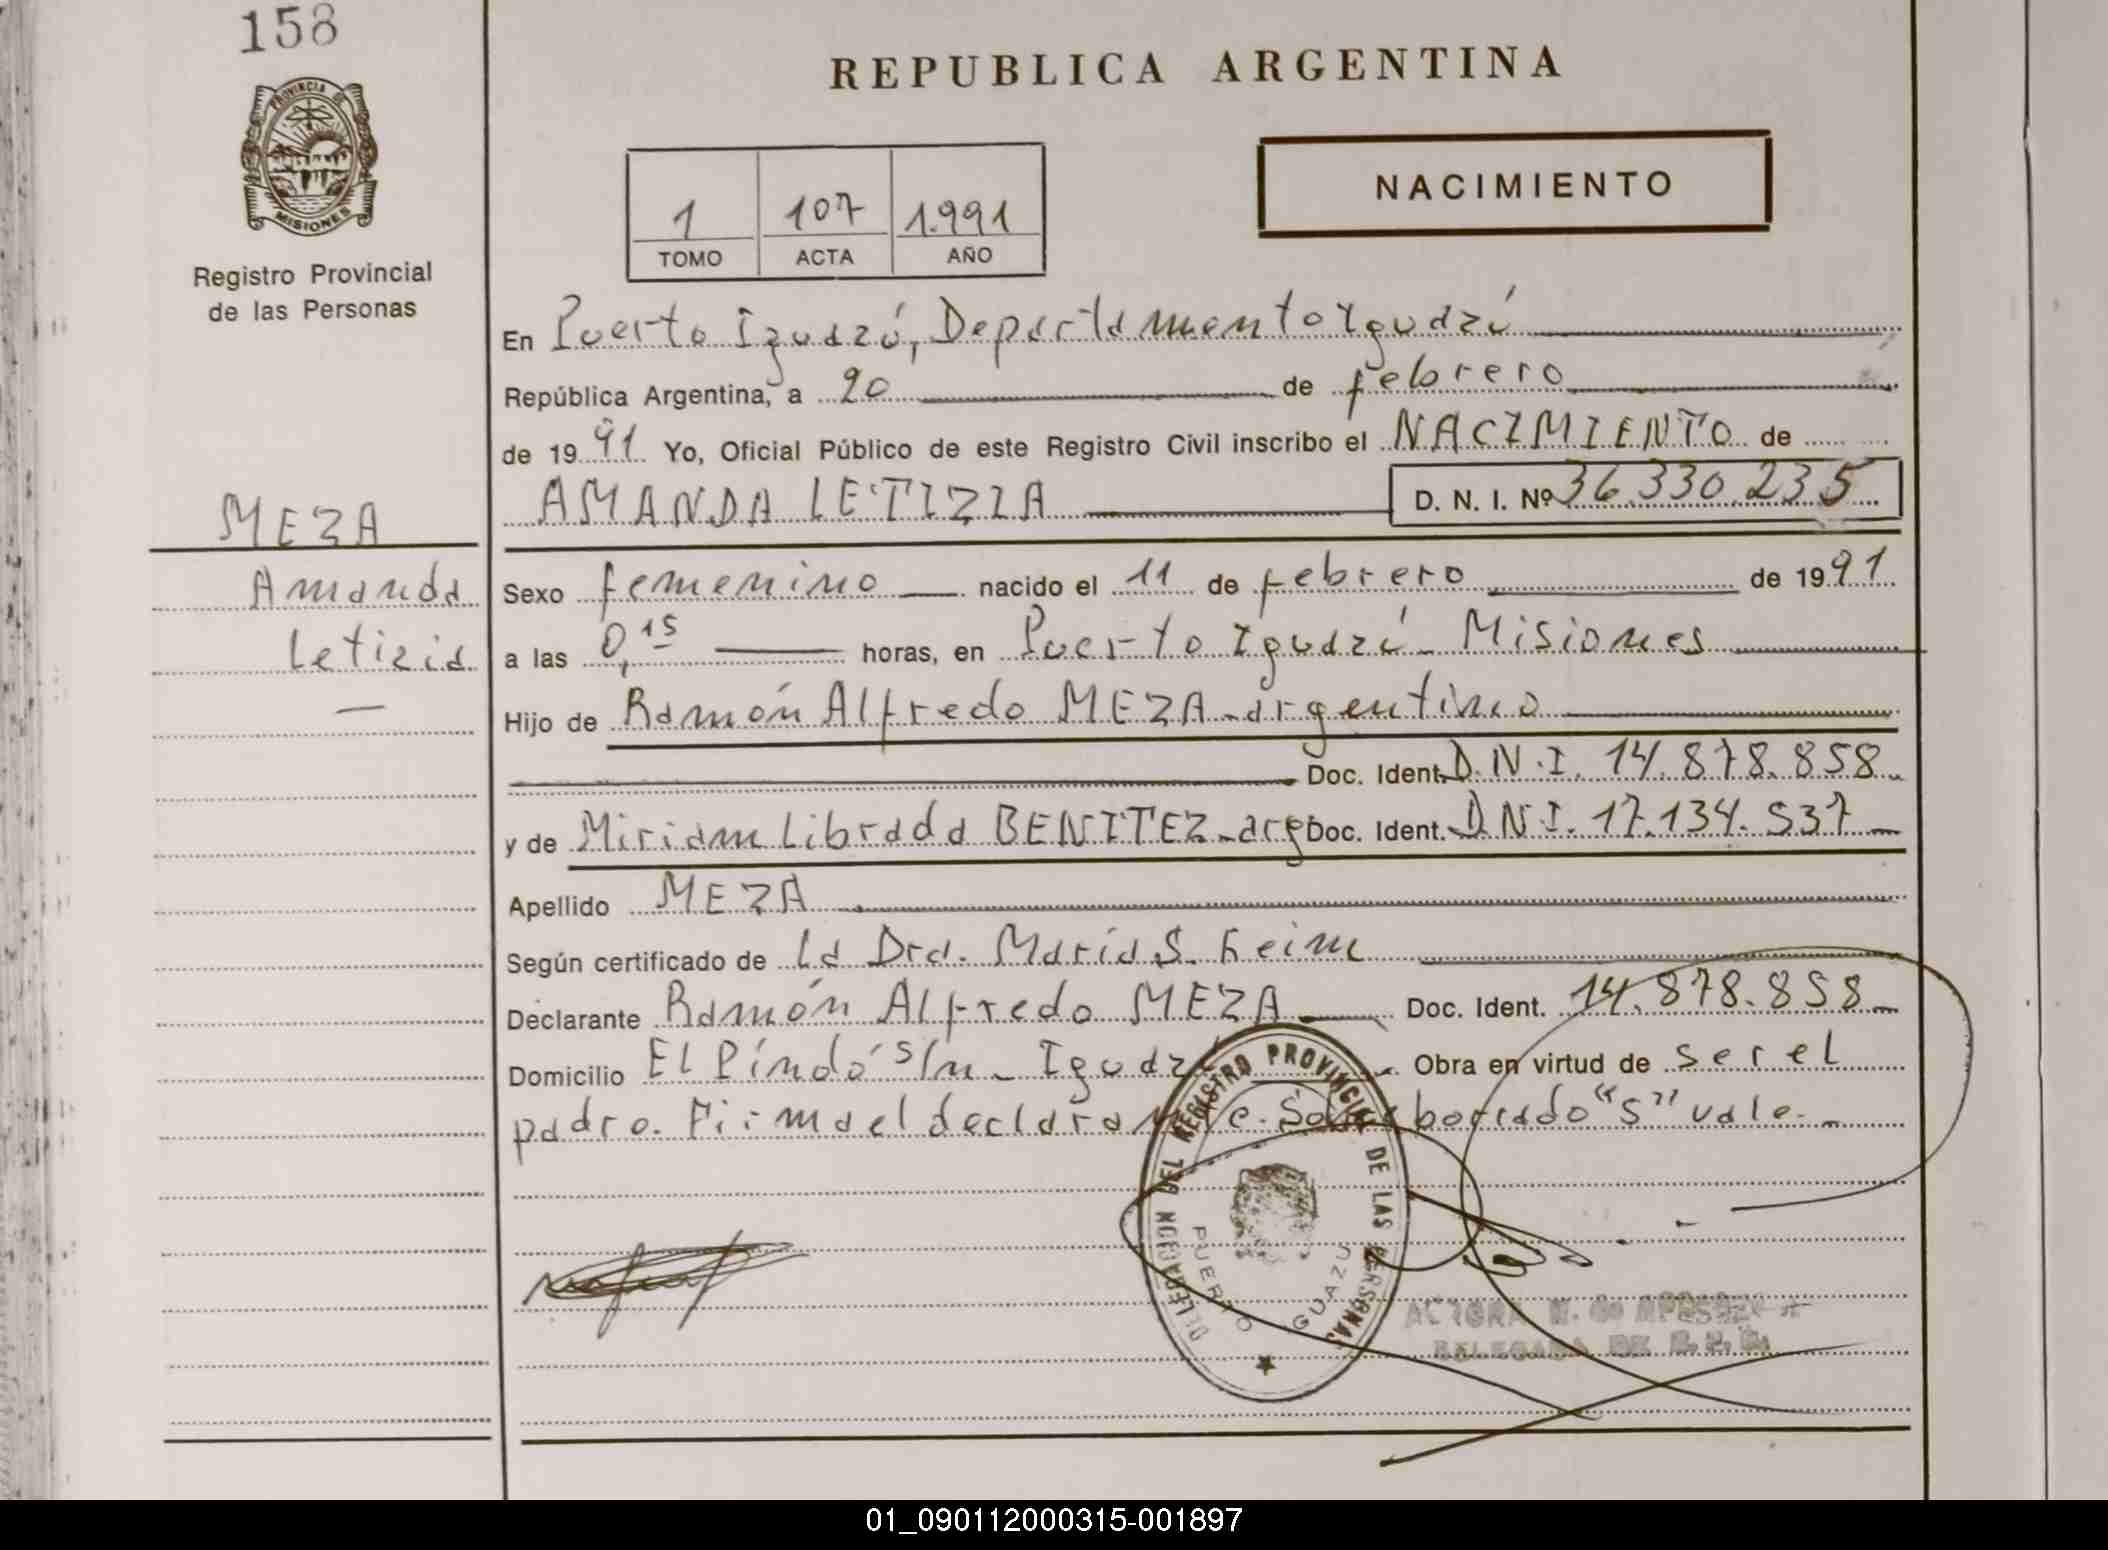 158
PROVINCIA DE
MISIONES
Registro Provincial
de las Personas
REPUBLICA ARGENTINA
NACIMIENTO
1 107 1.991
TOMO ACTA AÑO
En Puerto Iguazú, Departamento Iguazú
República Argentina, a 20 de febrero
de 19 91 Yo, Oficial Público de este Registro Civil inscribo el NACIMIENTO de
AMANDA LETIZIA D. N. I. Nº 36.330.235
MEZA
Amanda
Letizia
Sexo femenino nacido el 11 de febrero de 1991
a las 0,15 horas, en Puerto Iguazú - Misiones
Hijo de Ramón Alfredo MEZA - argentino
Doc. Ident. D.N.I. 14.878.858
y de Miriam Librada BENITEZ - arg Doc. Ident. D.N.I. 17.134.537
Apellido MEZA
Según certificado de La Dra. María S. Keim
Declarante Ramón Alfredo MEZA Doc. Ident. 14.878.858
Domicilio El Pindó s/n - Iguazú Obra en virtud de ser el
padre. Firma el declarante. Sobre borrado "S" vale.
DELEGACION DEL REGISTRO PROVINCIAL DE LAS PERSONAS
PUERTO IGUAZU
01_090112000315-001897